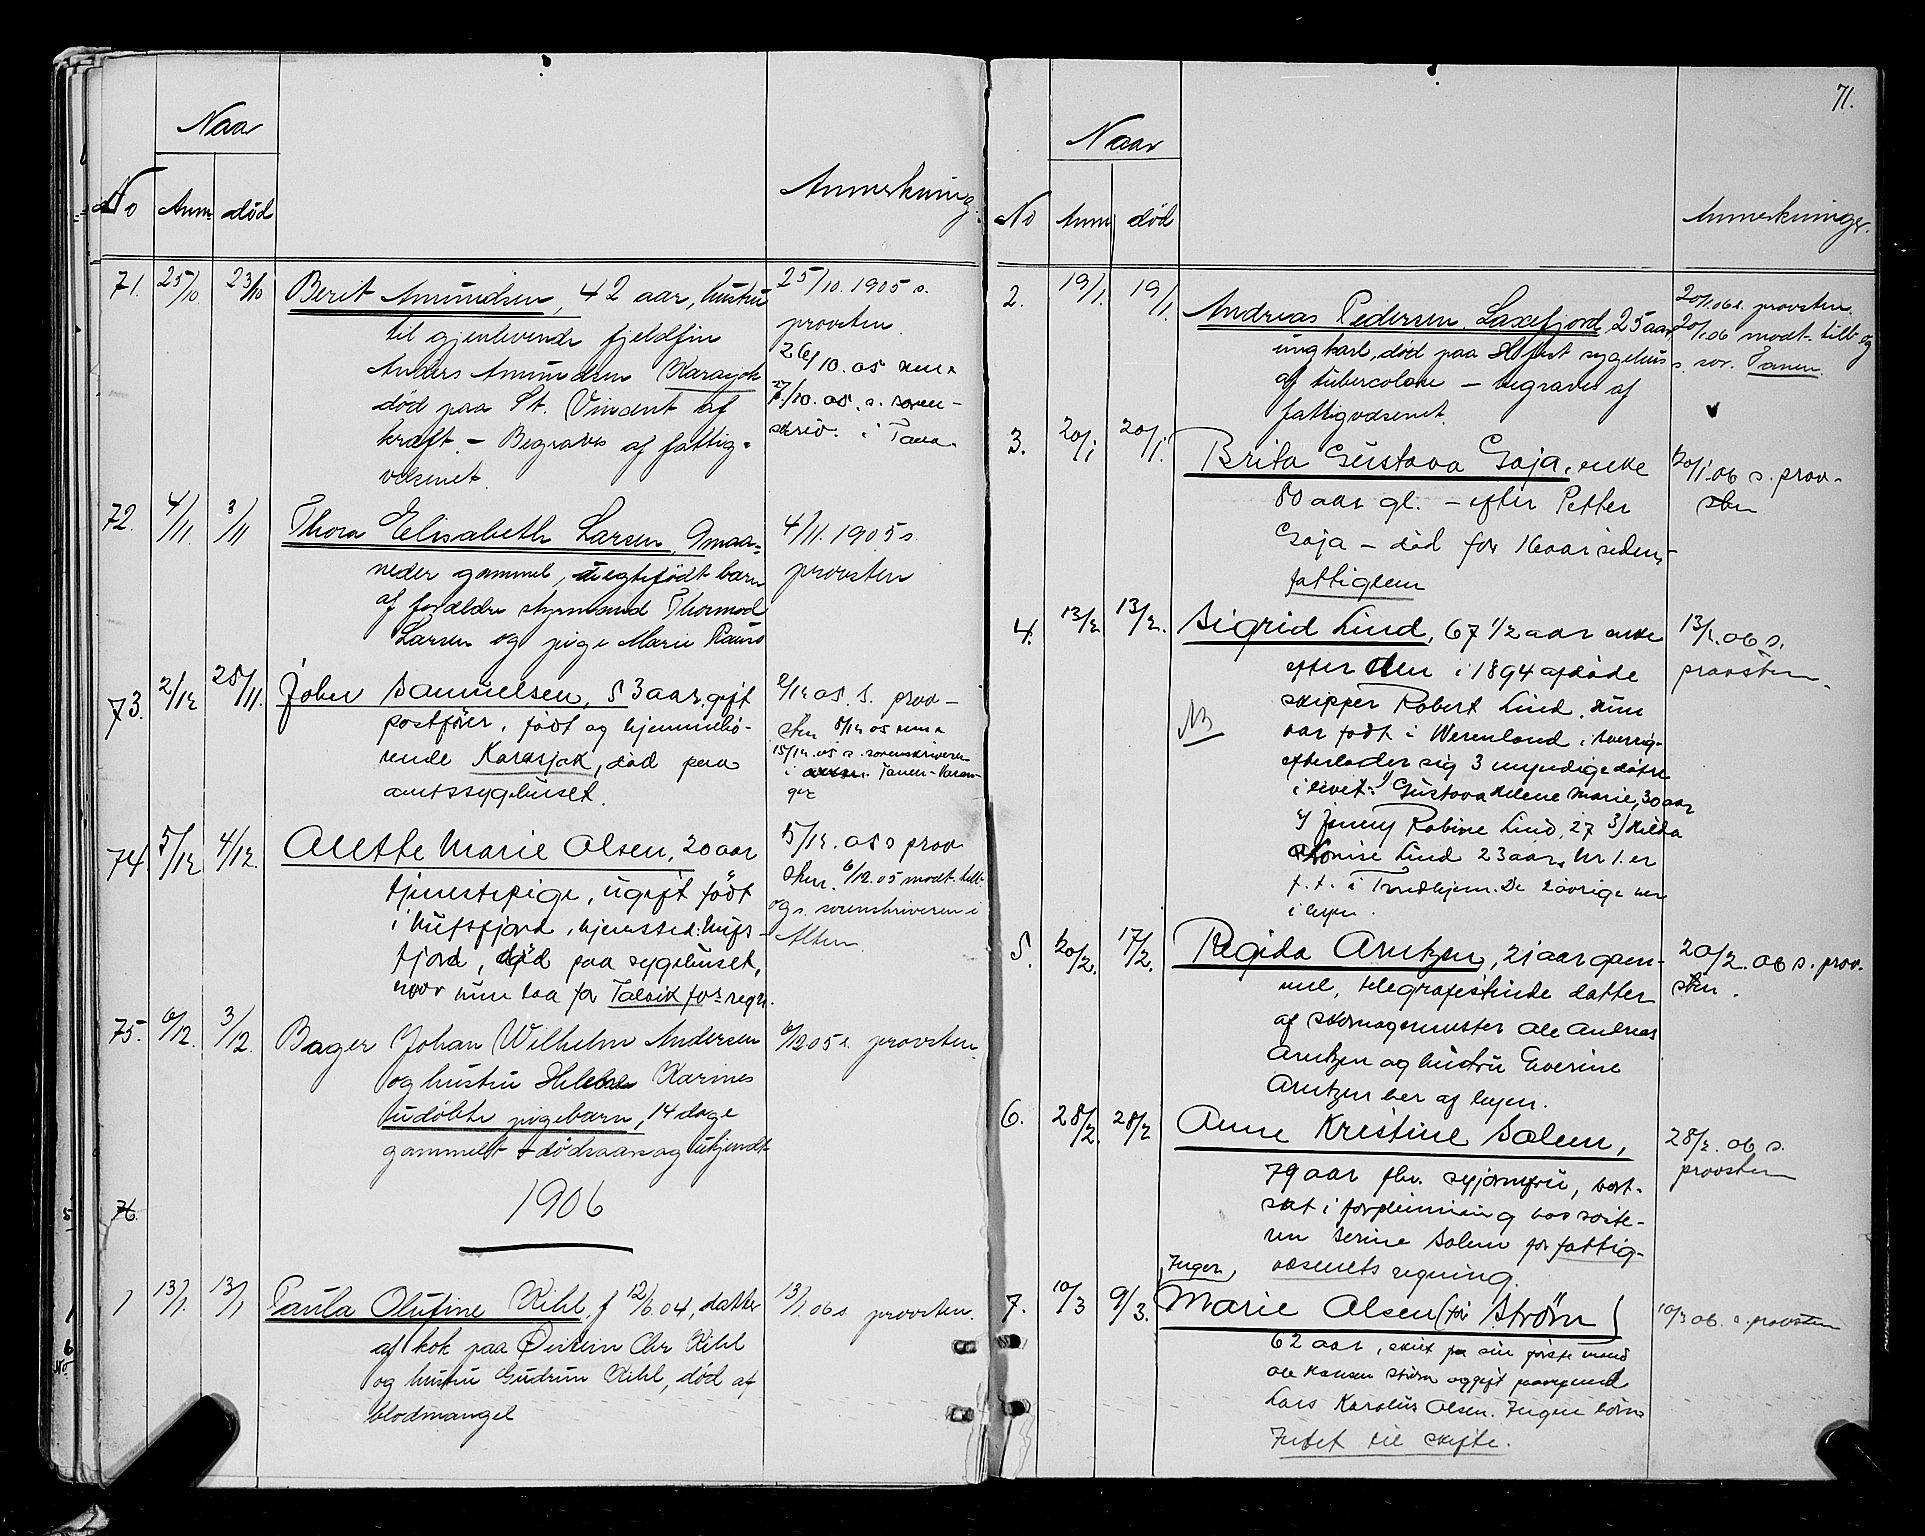 Naar
No Anm død Anmerkning.
71. 25/10. 23/10 Berit Amundsen, 42 aar, hustru 25/10. 1905 s.
til gjenlevende fjeldfin provsten.
Anders Amundsen Karasjok 26/10. 05
død paa St. Vincent af 27/10. 05. s. soren-
kræft. – Begraves af fattig- skriv. i Tana.
væsenet.
72. 4/11. 3/11 Thora Elisabeth Larsen, 9 maa- 4/11. 1905 s.
neder gammel, uegtefødt barn provsten
af forældre styrmand Thormod
Larsen og pige Marie
73. 2/12 25/11. Johan Samuelsen, 53 aar, gift 2/12 05 s. prov-
postfører, født og hjemmehø- sten 5/12 05
rende Karasjok, død paa 15/12. 05 s. sorenskriveren
amtssygehuset. i Tanen-Varan-
ger
74. 5/12 4/12. Alette Marie Olsen, 20 aar 5/12. 05 s prov
tjenestepige, ugift født sten. 6/12. 05 modt. tilb.
i Kufsfjord, hjemsted: Kufs- og s. sorenskriveren i
fjord, død paa sygehuset, Alten.
hvor hun laa for Talvik fors regn.
75. 6/12. 3/12. Bager Johan Wilhelm Andersen 6/12 05 s. provsten
og hustru Karines
udøbte pigebarn, 14 dage
gammelt – dødsaarsag ukjendt
76.
1906
1 13/1. 13/1 Paula Olufine Kihl, f 12/6. 04, datter 13/1. 06 s provsten.
af kok paa Øistein Chr Kihl
og hustru Gudrun Kihl, død af
blodmangel
71.
Naar
No Anm død Anmerkninger.
2. 19/1. 19/1. Andreas Pedersen Laxefjord, 25 aar, 20/1. 06 s. provsten.
ungkarl, død paa Hfest sygehus 20/1. 06 modt. tilb og
af tuberculose – begraves af s. sor. Tanen.
fattigvæsenet.
3. 20/1 20/1. Brita Gustava Gaja, enke 20/1. 06 s. prov-
80 aar gl. – efter Petter sten
Gaja – død for 16 aar siden,
fattiglem
4. 13/2 13/2. Sigrid Lind, 67 1/2 aar enke 13/2. 06 s.
efter den i 1894 afdøde provsten.
skipper Robert Lind. Hun
NB var født i Wermland i Sverrig-
efterlader sig 3 myndige døtre
i livet: 1) Gustava Helene Marie, 30 aar
2) Jenny Robine Lind, 27 3) Hilda
Lovise Lind 23 aar. Nr 1. er
f. t. i Trondhjem. De 2 øvrige her
i byen.
5. 20/2. 17/2. Regida Arntzen, 21 aar gam- 20/2. 06 s. prov-
mel, telegrafistinde datter sten.
af skomagermester Ole Andreas
Arntzen og hustru Everine
Arntzen her af byen.
6. 28/2. 28/2 Anne Kristine Salem, 28/2. 06 s.
79 aar fhv. syjomfru, bort- provsten
sat i forpleining hos søste-
ren Serine Salem for fattig-
væsenets regning.
7. 10/3 9/3. Inger Marie Olsen (før Strøm) 10/3 06. s. provsten
62 aar, skilt fra sin første mand
Ole Hansen Strøm og gift paanyt med
Lars Karolius Olsen. Ingen børn
Intet til skifte.